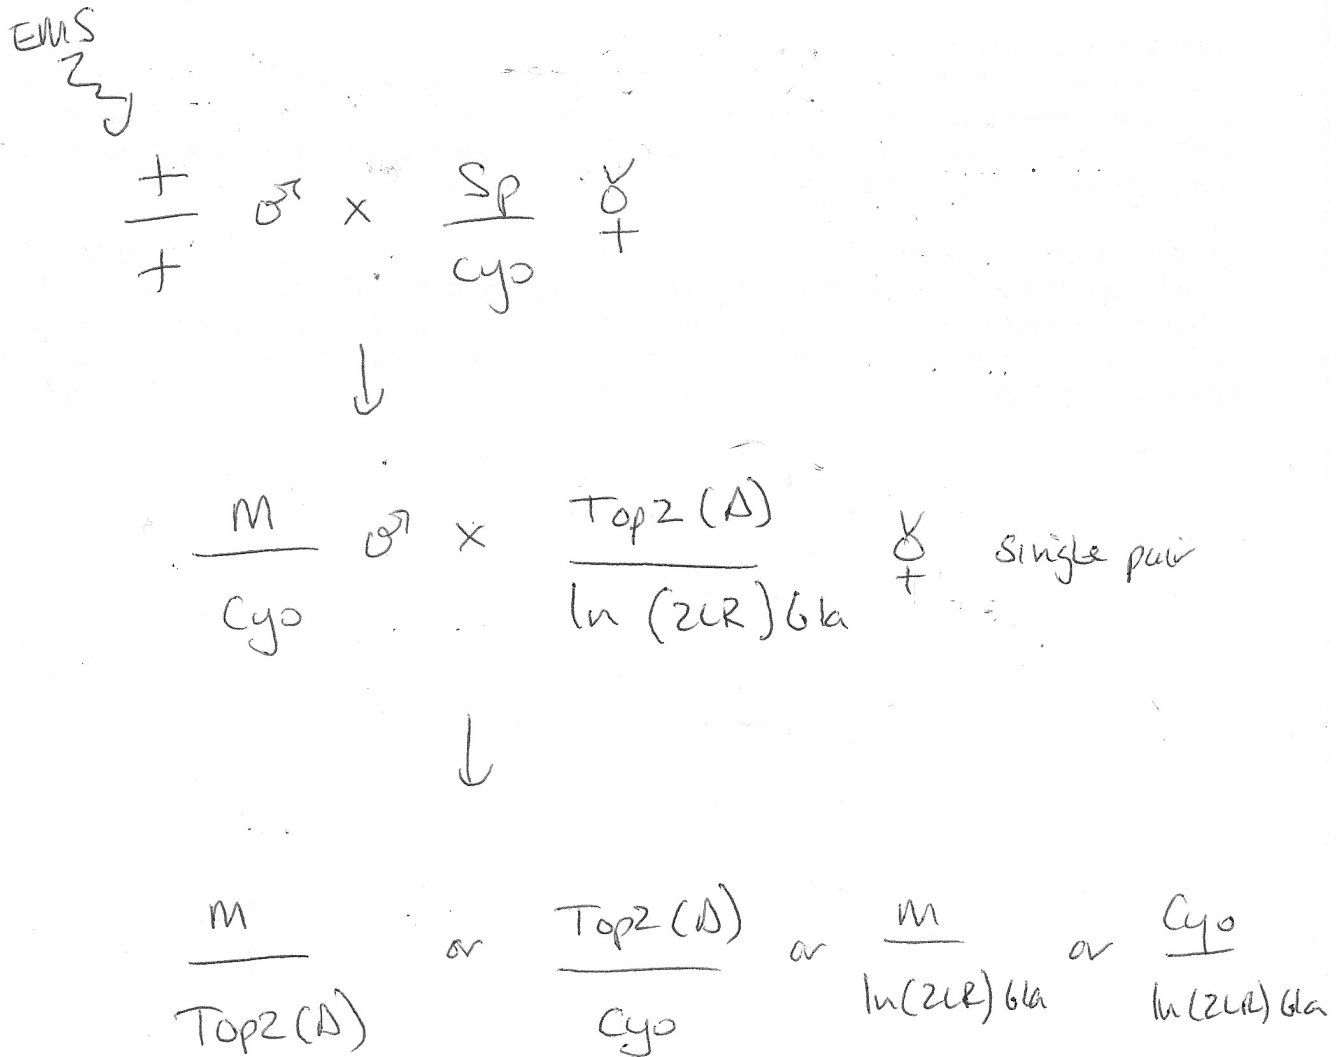 EMS
+
+
♂ x
Sp
Cyo
☿
↓
M
Cyo
♂ x
Top2 (Δ)
In (2LR) Gla
☿ single pair
↓
M
Top2 (Δ)
or
Top2 (Δ)
Cyo
or
M
In (2LR) Gla
or
Cyo
In (2LR) Gla